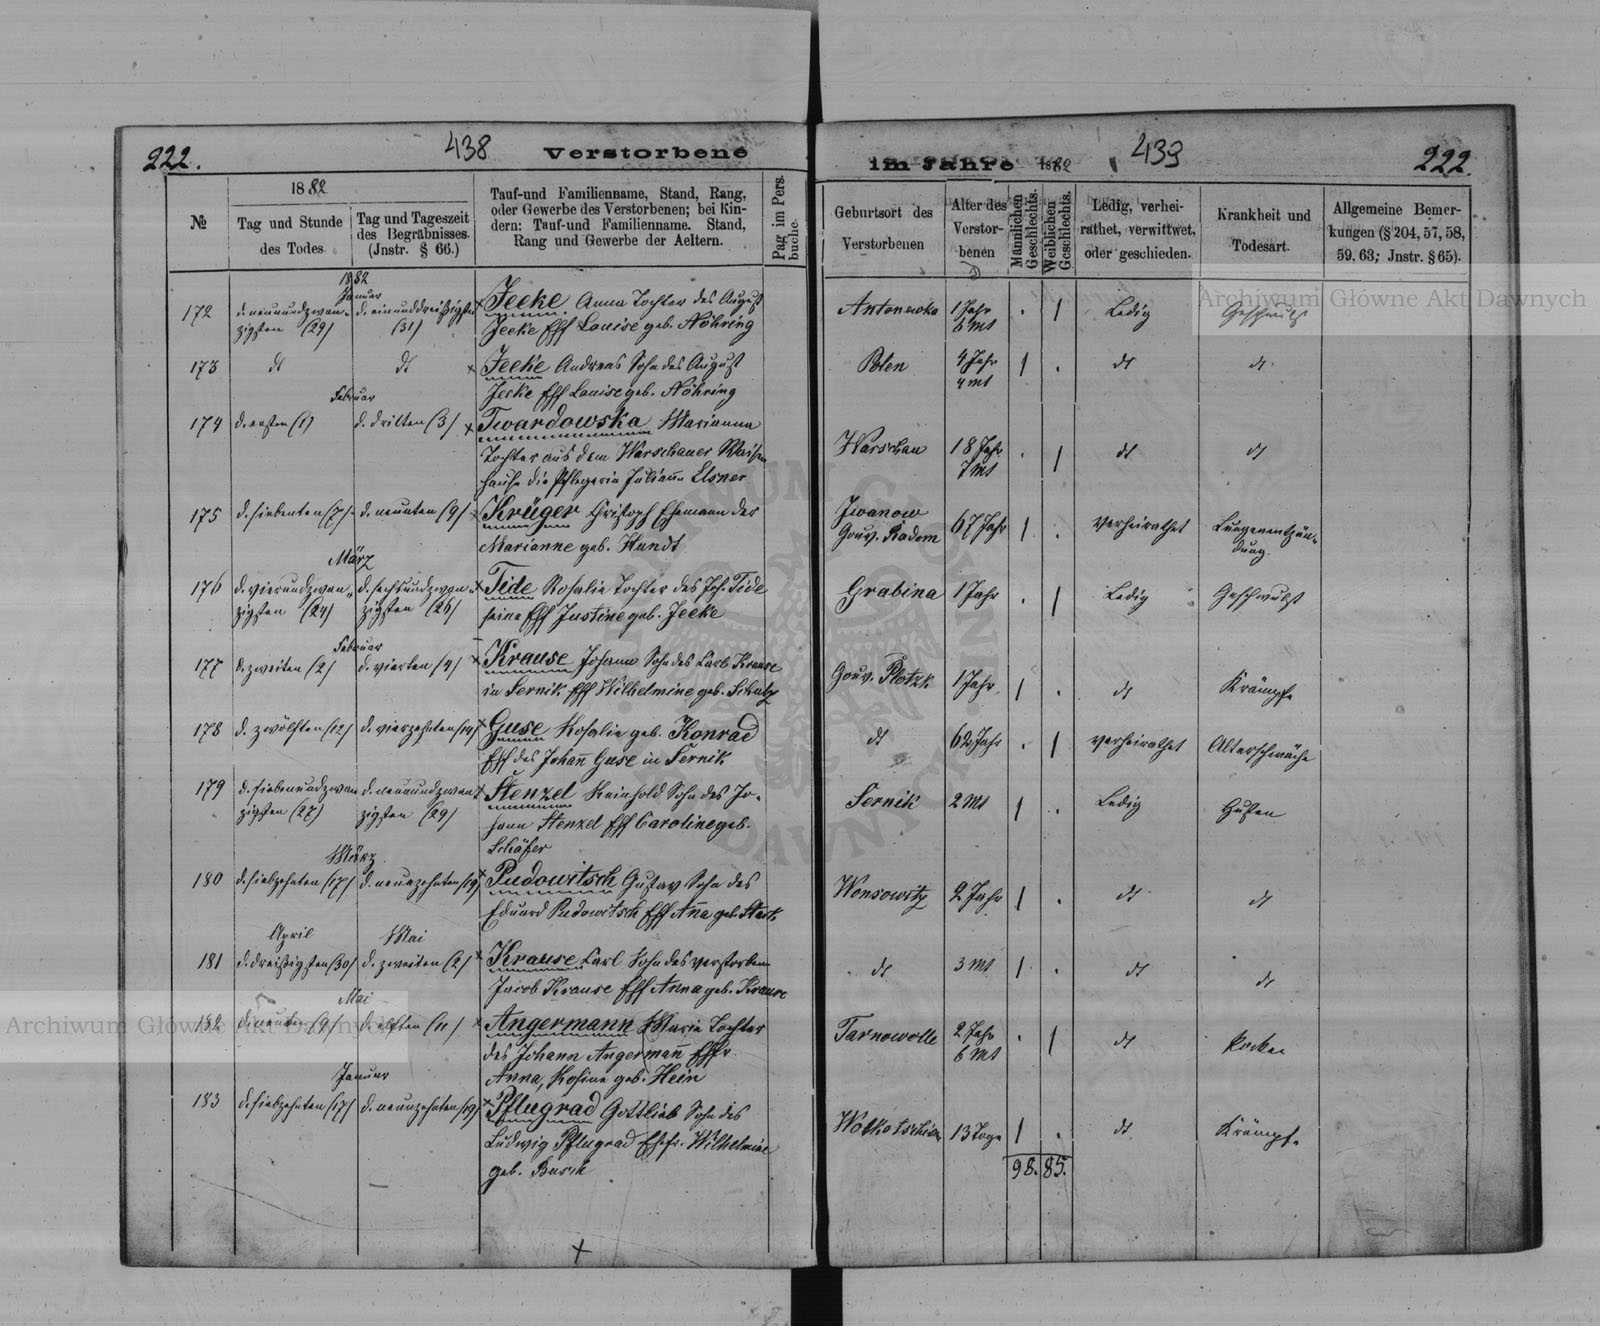 222.
438
Verstorbene
im Jahre 1882
439
222.
№
1882
Tag und Stunde
des Todes.
Tag und Tageszeit
des Begräbnisses.
(Jnstr. § 66.)
Tauf-und Familienname, Stand, Rang,
oder Gewerbe des Verstorbenen; bei Kin-
dern: Tauf-und Familienname. Stand,
Rang und Gewerbe der Aeltern.
Pag im Pers.
buche.
Geburtsort des
Verstorbenen
Alter des
Verstor-
benen
Männlichen
Geschlechts.
Weiblichen
Geschlechts.
Ledig, verhei-
rathet, verwittwet,
oder geschieden.
Krankheit und
Todesart.
Allgemeine Bemer-
kungen (§ 204, 57, 58,
59. 63; Jnstr. § 65).
1882
Januar
172 d. neunundzwan- d. einunddreißigsten Jeeke Anna Tochter des August Antonowka 1 Jahr 1 Ledig Geschwulst
zigsten (29) (31) Jeeke Eff Louise geb. Nöhring 6 Mt
173 dt dt Jeeke Andreas Sohn des August Polen 4 Jahr 1 dt dt
Jeeke Eff Louise geb. Nöhring 4 Mt
Februar
174 d. ersten (1) d. dritten (3) Twardowska Marianna
Tochter aus dem Warschauer Waisen Warschau 18 Jahr 1 dt dt
hause die Pflegerin Julianne Elsner 7 Mt
175 d. siebenten (7) d. neunten (9) Krüger Christoph Ehemann der Iwanow 67 Jahr 1 verheirathet Lungenentzün-
Marianne geb. Hundt Gouv. Radom dung
März
176 d. vierundzwan- d. sechsundzwan- Tide Rosalie Tochter des Joh. Tide Grabina 1 Jahr 1 Ledig Geschwulst
zigsten (24) zigsten (26) seine Eff Justine geb. Jeeke
Februar
177 d. zweiten (2) d. vierten (4) Krause Johann Sohn des Carl Krause Gouv. Plotzk 1 Jahr 1 dt Krämpfe
in Sernik Eff Wilhelmine geb. Schulz
178 d. zwölften (12) d. vierzehnten (14) Guse Rosalie geb. Konrad dt 62 Jahr 1 verheirathet Alterschwäche
Eff des Johann Guse in Sernik
179 d. siebenundzwan d. neunundzwan Stenzel Reinhold Sohn des Jo- Sernik 2 Mt 1 Ledig Husten
zigsten (27) zigsten (29) hann Stenzel Eff Caroline geb.
Schäfer
März
180 d. siebzehnten (17) d. neunzehnten (19) Pudowitsch Gustav Sohn des Wonsowitz 2 Jahr 1 dt dt
Eduard Pudowitsch Eff Anna geb. Stark
April Mai
181 d. dreißigsten (30) d. zweiten (2) Krause Carl Sohn des verstorben dt 3 Mt 1 dt dt
Jacob Krause Eff Anna geb. Krause
Mai
182 d. neunten (9) d. elften (11) Angermann Maria Tochter Tarnowolle 2 Jahr 1 dt Pocken
des Johann Angermann Effr. 6 Mt
Anna, Rosine geb. Hein
Januar
183 d. siebzehnten (17) d. neunzehnten (19) Pflugrad Gottlieb Sohn des 13 Tage 1 dt Krämpfe
Ludwig Pflugrad Ehfr. Wilhelmine
geb. Busch
98. 85.
Archiwum Główne Akt Dawnych
Archiwum Główne Akt Dawnych